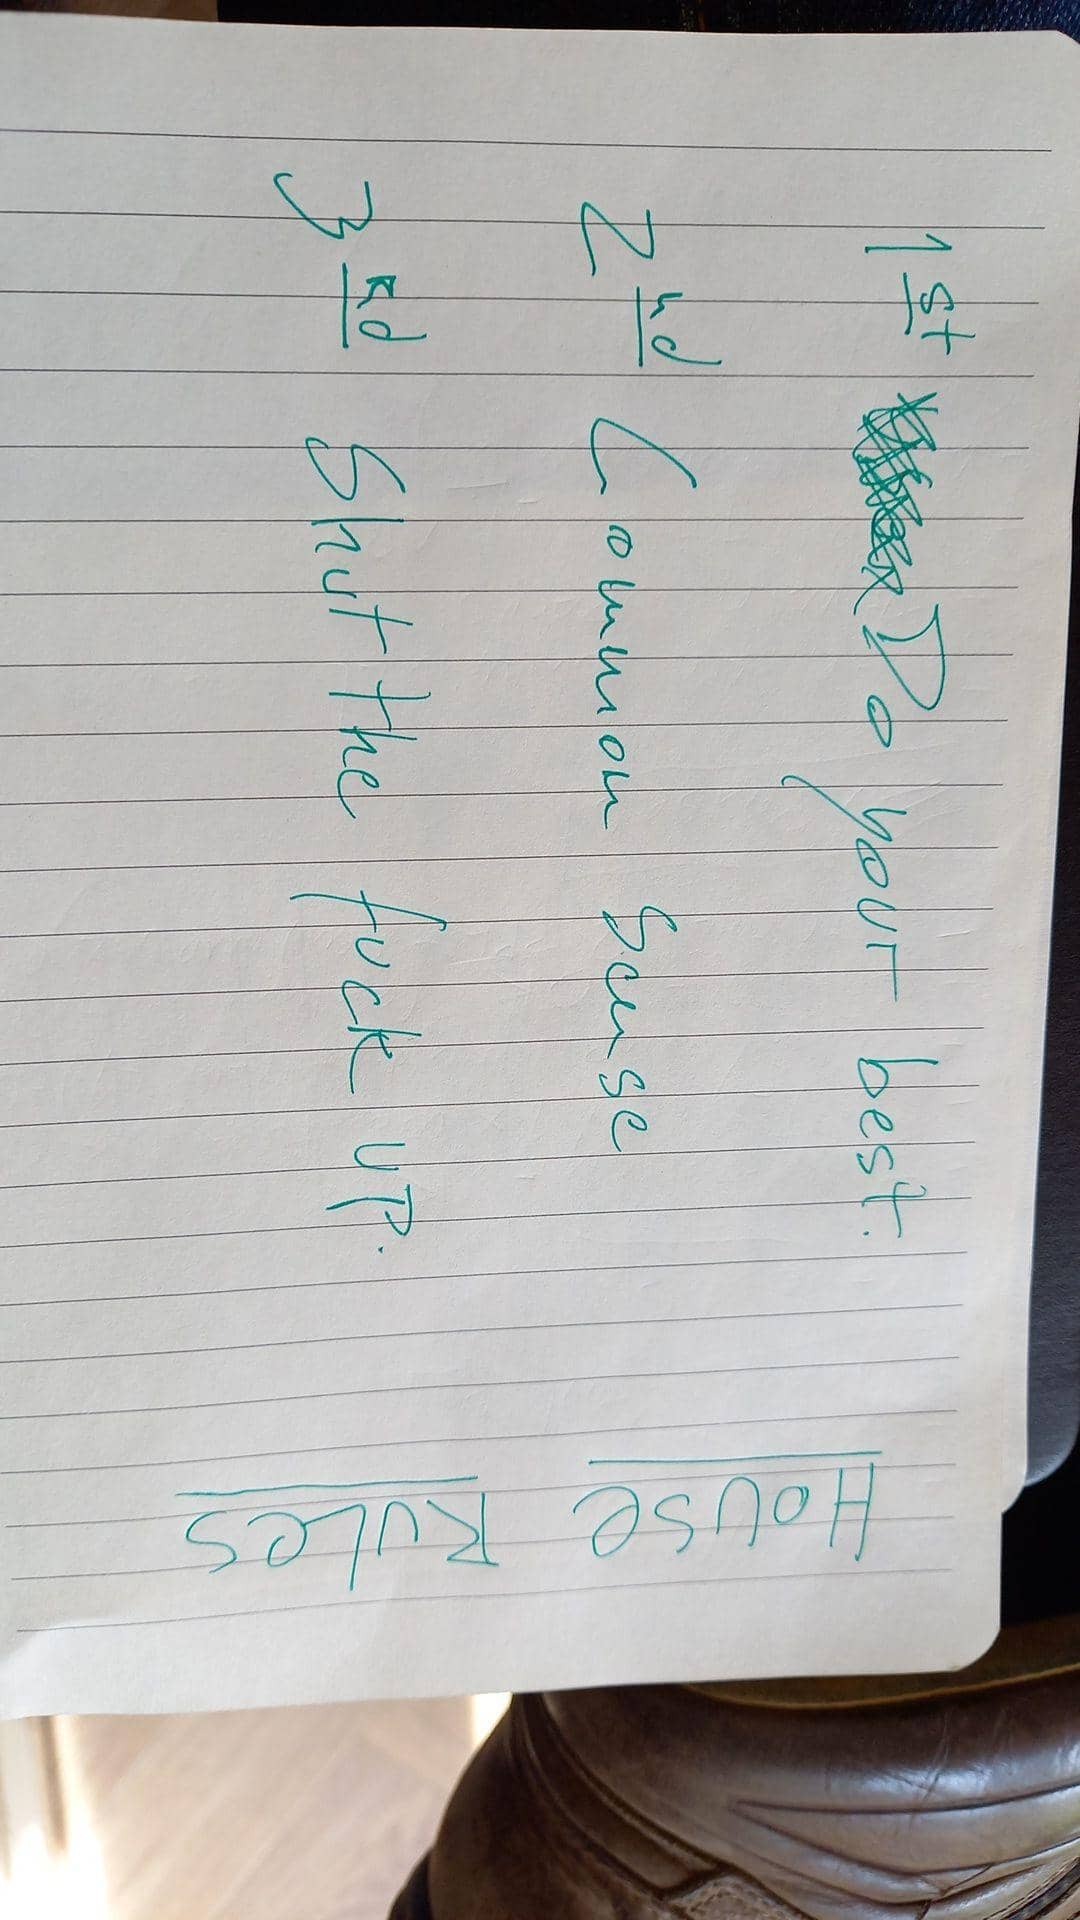 HOUSE RULES
1st Do your best.
2nd Common Sense
3Rd Shut the fuck UP.